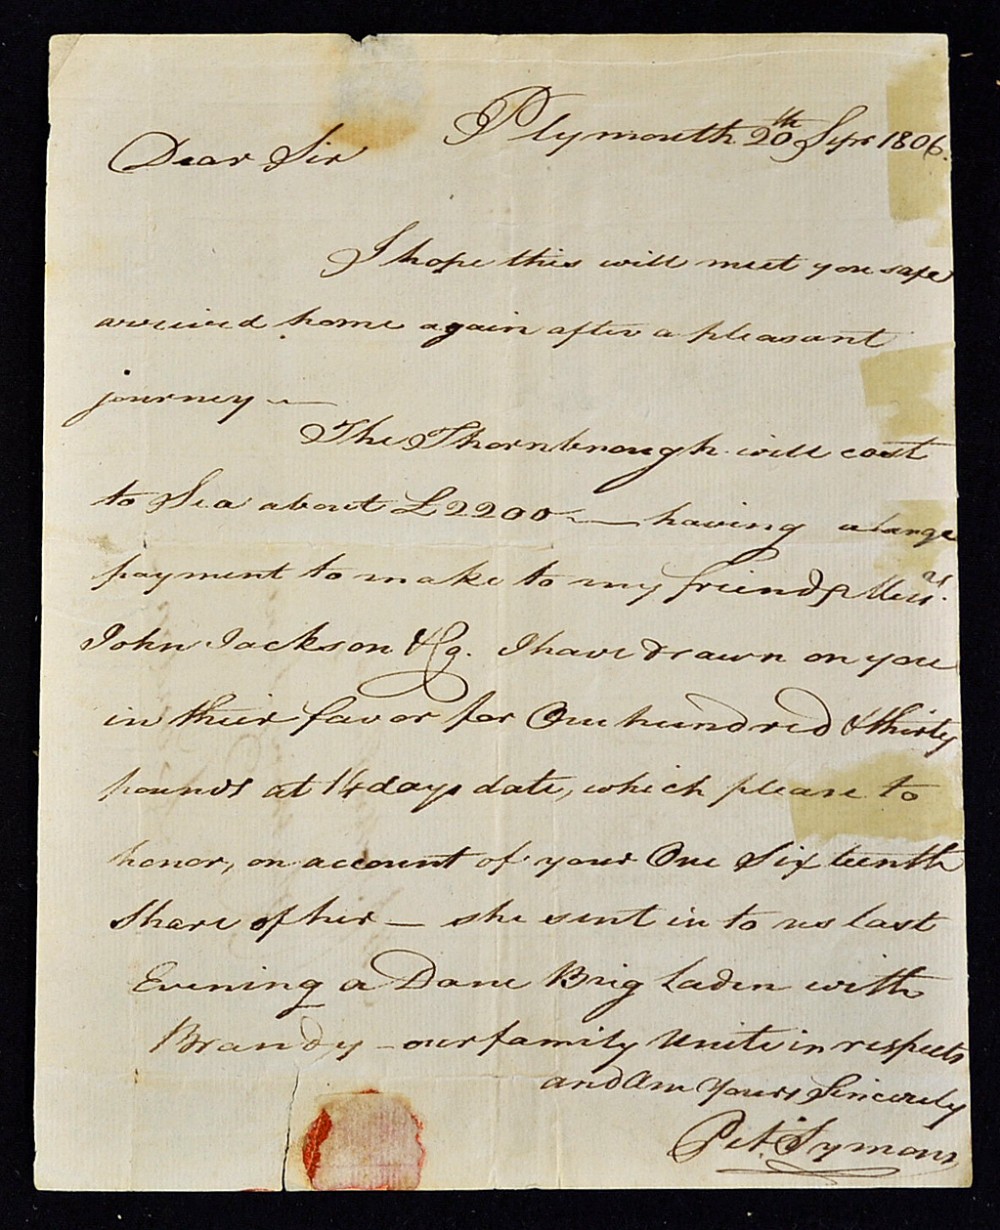 Plymouth 20th Sepr 1806.
Dear Sir
I hope this will meet you safe
arrived home again after a pleasant
journey —
The Thornbrough will cost
to Sea about £2200 — having a large
payment to make to my friends Messrs.
John Jackson & Co. I have drawn on you
in their favor for One hundred & thirty
pounds at 14 days date, which please to
honor, on account of your One Sixteenth
Share of her — she sent in to us last
Evening a Dane Brig laden with
Brandy — our family Unite in respects
and Am Yours Sincerely
Pet. Symons